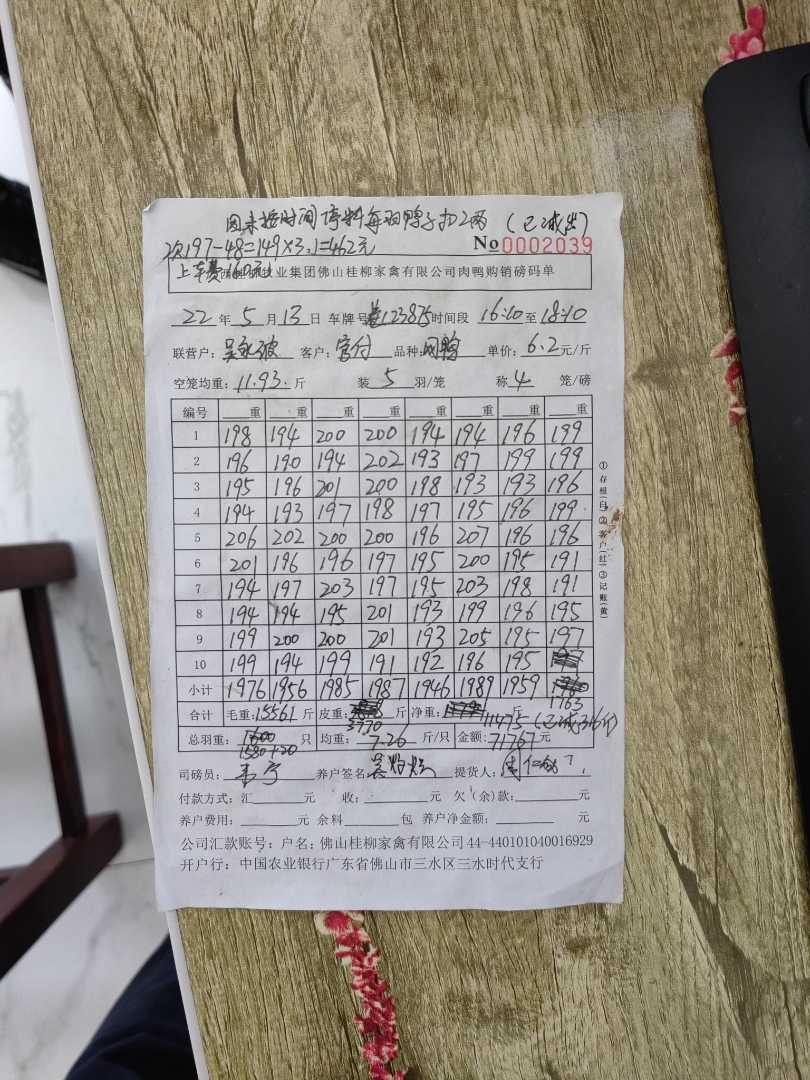 因未按时间停料每羽鸭子扣2两 (已减出)
次197-48=149×3.1=462元
No 0002039
上车费160元
牧业集团佛山桂柳家禽有限公司肉鸭购销磅码单
22 年 5 月 13 日 车牌号 123875 时间段 16:10 至 18:10
联营户: 客户: 品种: 单价: 6.2 元/斤
空笼均重: 11.93 斤 装 5 羽/笼 称 4 笼/磅
编号 重 重 重 重 重 重 重 重
1 198 194 200 200 194 194 196 199
2 196 190 194 202 193 197 199 199
3 195 196 201 200 198 193 193 196
4 194 193 197 198 197 195 196 199
5 206 202 200 200 196 207 196 196
6 201 196 196 197 195 200 195 191
7 194 197 203 197 195 203 198 191
8 194 194 195 201 193 199 196 195
9 199 200 200 201 193 205 195 197
10 199 194 199 191 192 196 195
小计 1976 1956 1985 1987 1946 1989 1959
1763
合计 毛重: 15561 斤 皮重: 3770 斤 净重: 11475 (已减316斤) 斤
总羽重: 1600 只 均重: 7.26 斤/只 金额: 71767 元
1580+20
司磅员: 养户签名: 提货人:
付款方式: 汇 元 收: 元 欠(余)款: 元
养户费用: 元 余料 包 养户净金额: 元
公司汇款账号: 户名: 佛山桂柳家禽有限公司 44-440101040016929
开户行: 中国农业银行广东省佛山市三水区三水时代支行
①存根(白)②客户(红)③记账(黄)